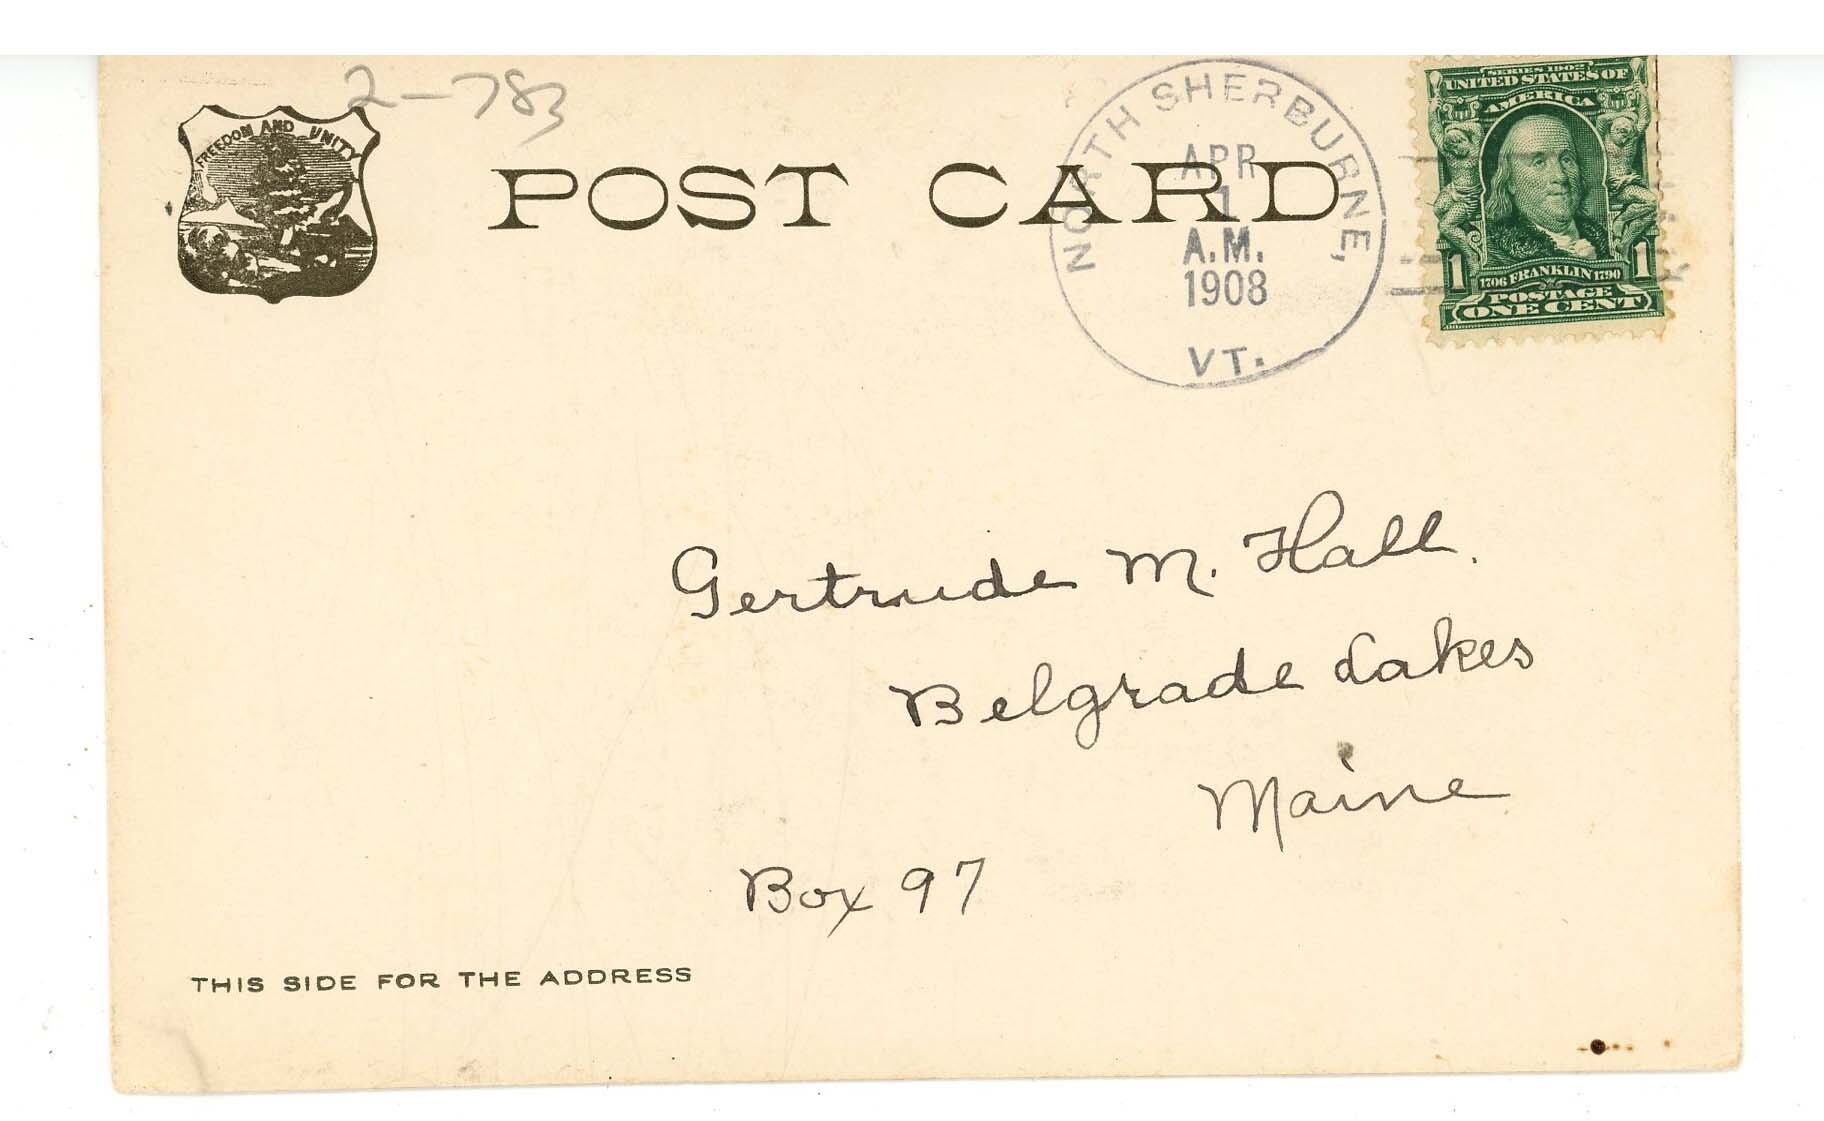 2-783
FREEDOM AND UNITY
POST CARD
NORTH SHERBURNE,
APR
1
A.M.
1908
VT.
SERIES 1902
UNITED STATES OF
AMERICA
1706 FRANKLIN 1790
1 1
POSTAGE
ONE CENT
Gertrude M. Hall.
Belgrade Lakes
Maine
Box 97
THIS SIDE FOR THE ADDRESS